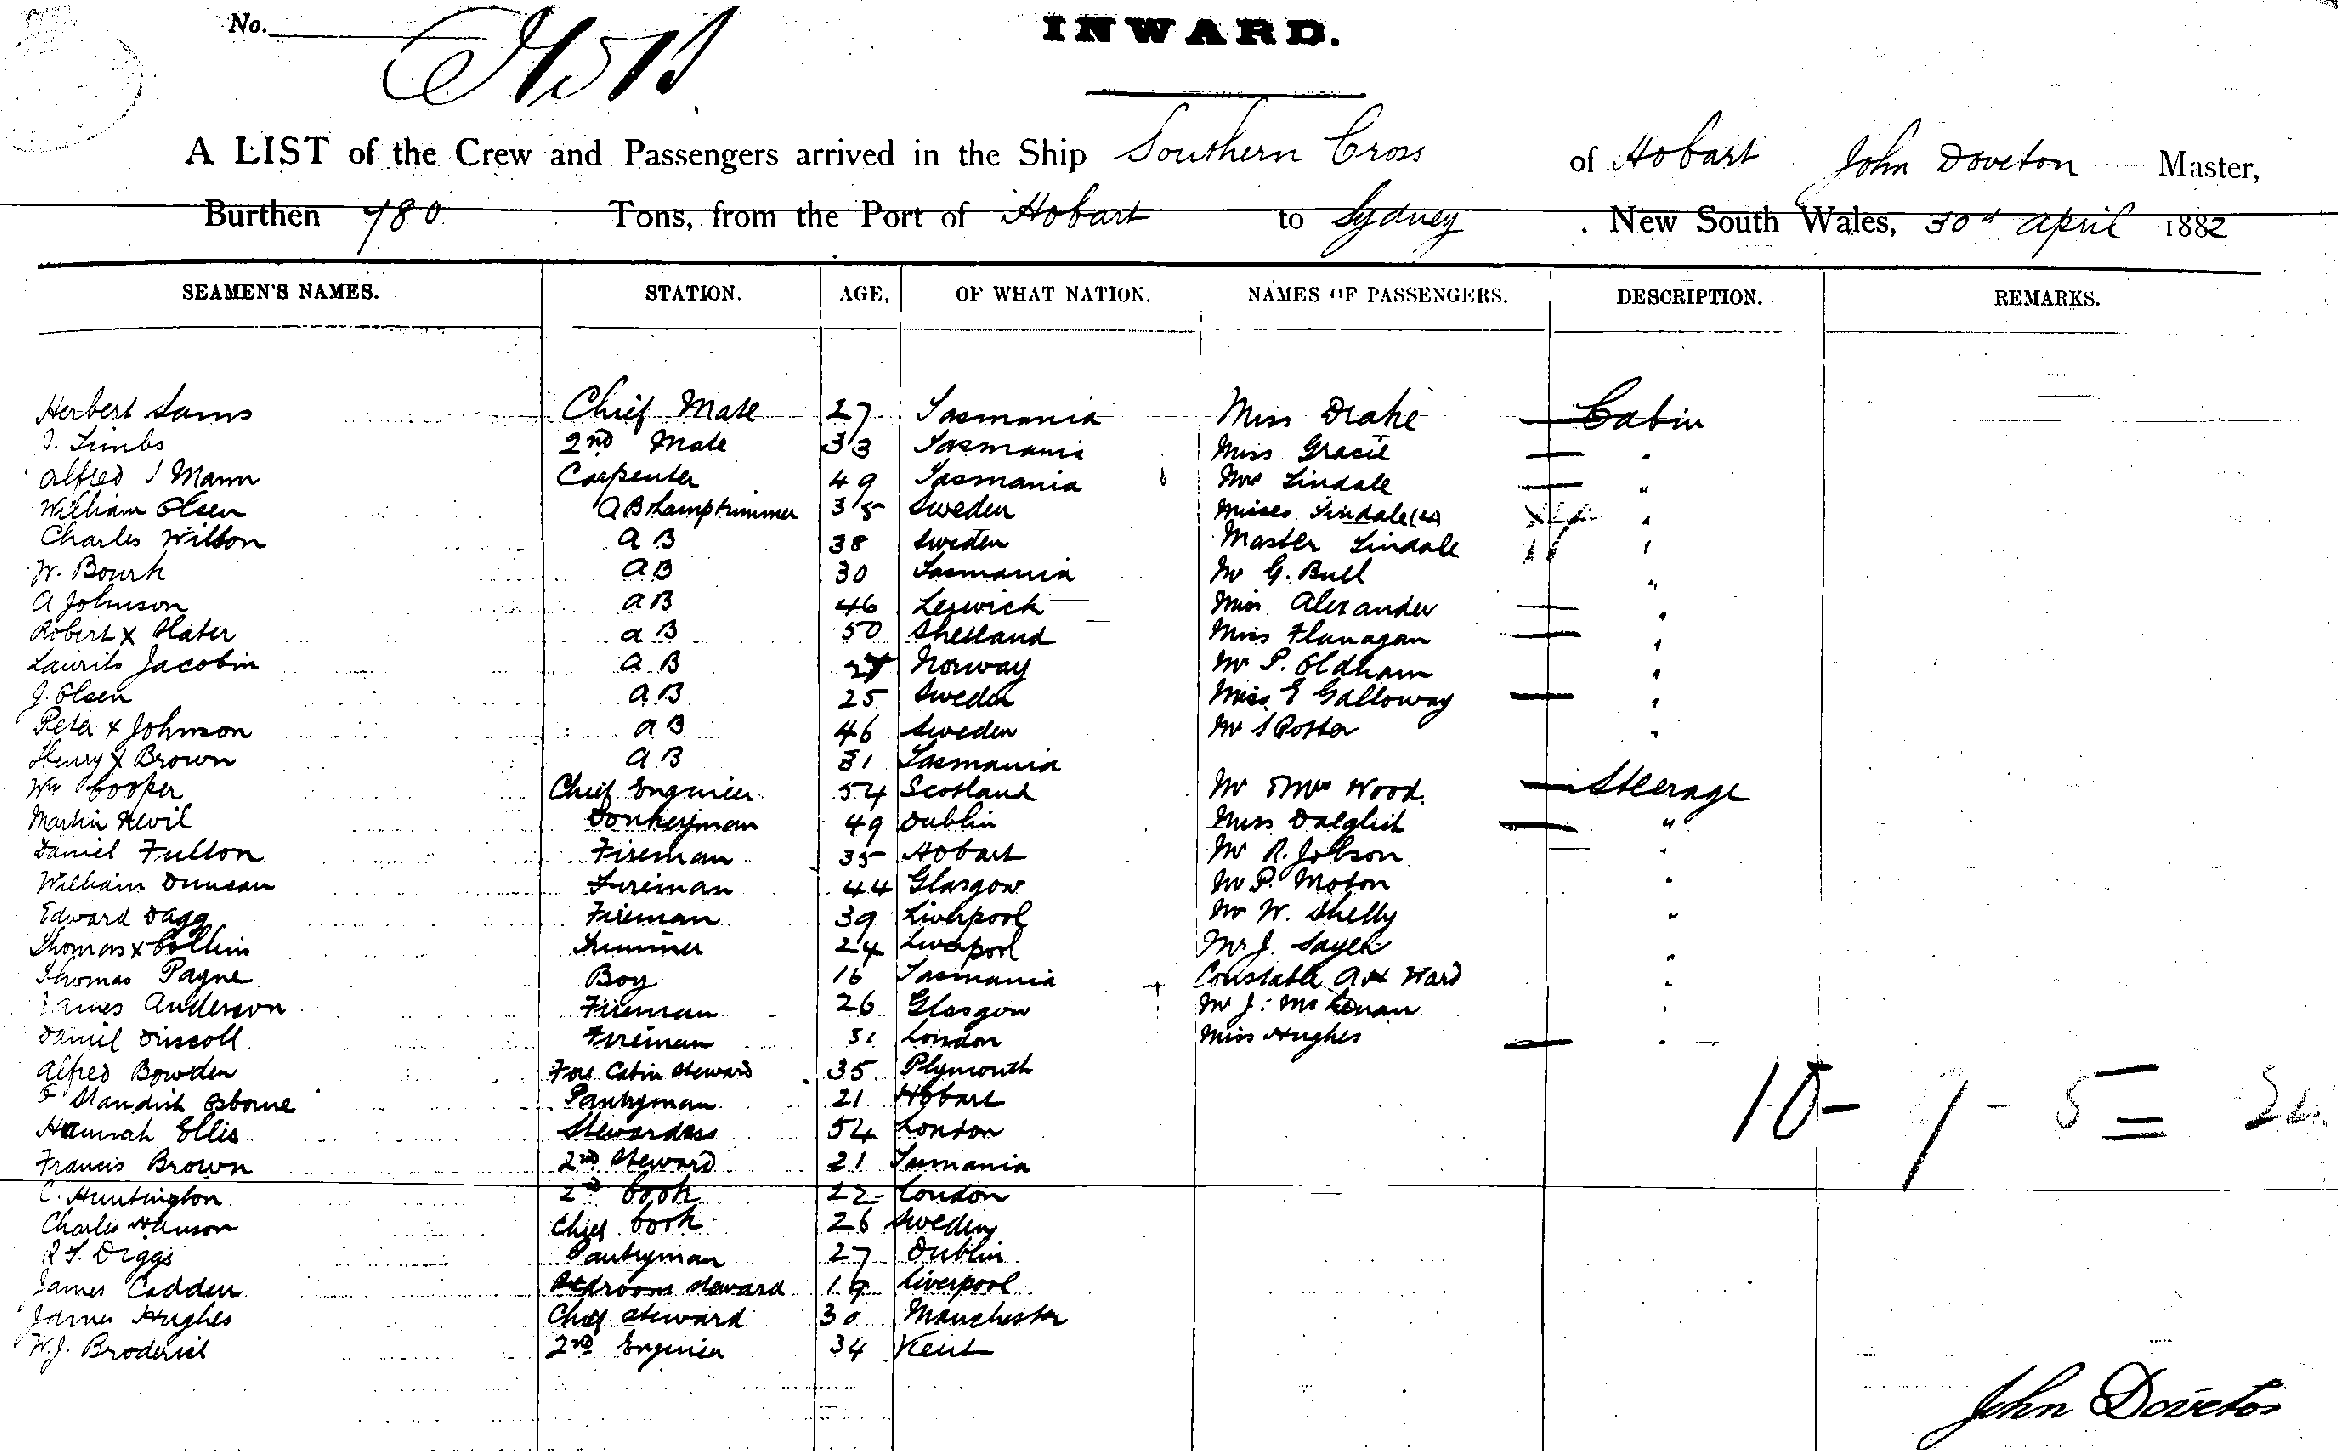 No.
INWARD.
A LIST of the Crew and Passengers arrived in the Ship Southern Cross of Hobart John Doveton Master,
Burthen 780 Tons, from the Port of Hobart to Sydney . New South Wales, 30 April 1882
SEAMEN'S NAMES. STATION. AGE. OF WHAT NATION. NAMES OF PASSENGERS. DESCRIPTION. REMARKS.
Herbert Sams Chief Mate 27 Tasmania Miss Drake Cabin
Limbs 2nd Mate 33 Tasmania Miss Gracie "
Alfred J Mann Carpenter 49 Tasmania Mrs Lindale "
William Olsen AB Lamptrimmer 35 Sweden Misses Lindale "
Charles Wilson AB 38 Sweden Master Lindale "
W. Bourk AB 30 Tasmania Mr G. Bull "
A Johnson AB 46 Lerwick Miss Alexander "
Robert x Slater AB 50 Shetland Miss Flanagan "
Laurits Jacobin AB Norway Mr P. Oldham "
J. Olsen AB 25 Sweden Miss E Galloway "
Peter x Johnson AB 46 Sweden Mr S Potter "
Henry x Brown AB 31 Tasmania
Wm Cooper Chief Engineer 54 Scotland Mr & Mrs Wood. Steerage
Martin Nevil Donkeyman 49 Dublin Miss Dalglish "
Daniel Fulton Fireman 35 Hobart Mr R. Jobson "
William Duncan Fireman 44 Glasgow Mr P. Moton "
Edward Dagg Fireman 39 Liverpool Mr W. Shelly "
Thomas x Collins Trimmer 24 Liverpool Mr J. Sayer "
Thomas Payne Boy 16 Tasmania Constable Ward "
James Anderson Fireman 26 Glasgow Mr J.
Daniel Driscoll Fireman 31 London Miss Hughes "
Alfred Bowden Fore Cabin Steward 35 Plymouth
F Standish Osborne Pantryman 21 Hobart
Hannah Ellis Stewardess 54 London
10 - 9 - 5 =
Francis Brown 2nd Steward 21 Tasmania
C. Huntington 2nd Cook 22 London
Charles Hanson Chief Cook 26 Sweden
Diggs Pantryman 27 Dublin
James Cadden Bedroom Steward 19 Liverpool
James Hughes Chief Steward 30 Manchester
W.J. Broderick 2nd Engineer 34 Kent
John Doveton